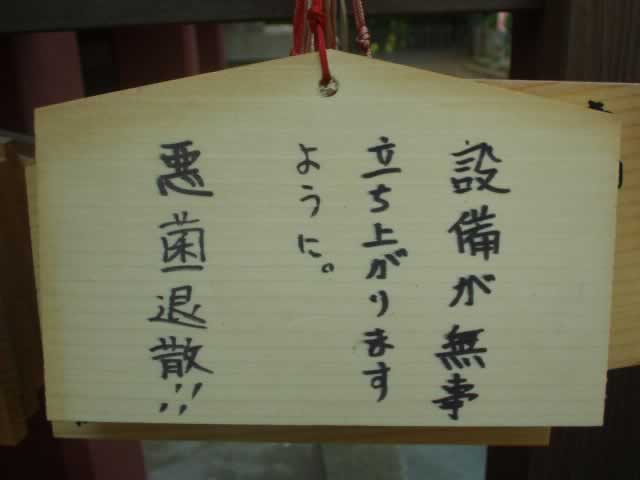 設備が無事
立ち上がります
ように。
悪菌退散!!